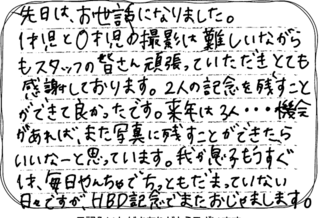 先日は、お世話になりました。
1才児と0才児の撮影は難しいながら
もスタッフの皆さん頑張っていただきとても
感謝しております。2人の記念を残すこと
ができて良かったです。来年は3人・・・機会
があれば、また写真に残すことができたら
いいなーと思っています。我が息子もうすぐ
は、毎日やんちゃでちっともだまっていない
日々ですが、HBD記念でまたおじゃまします。